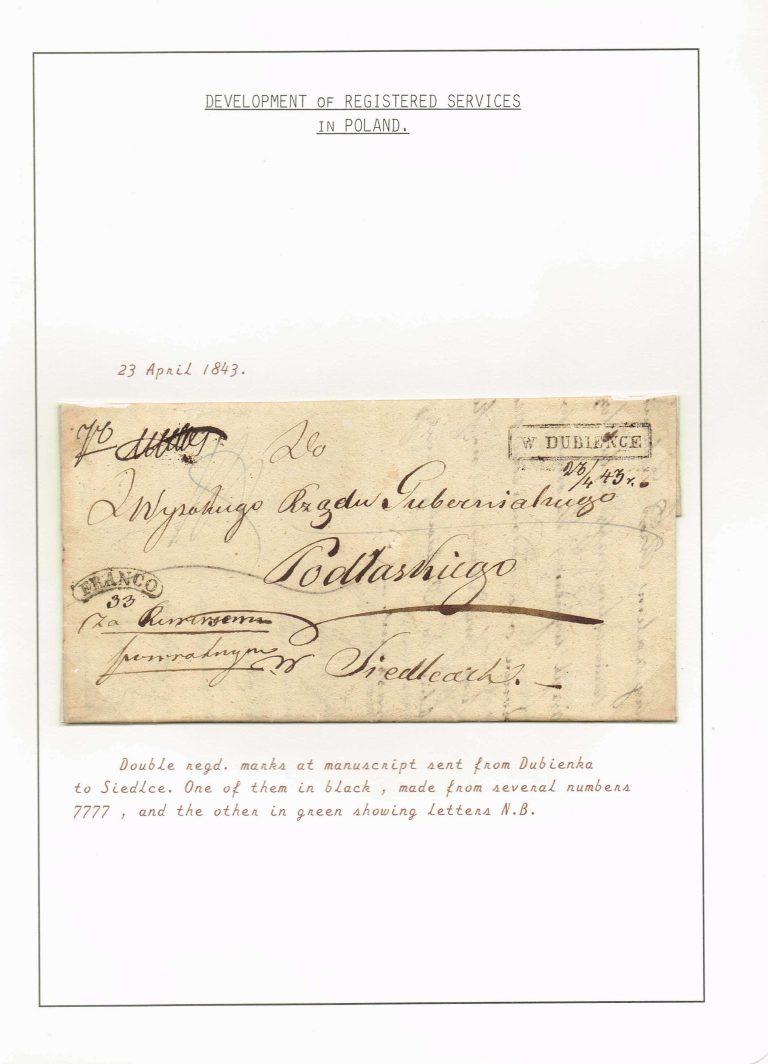 DEVELOPMENT OF REGISTERED SERVICES
IN POLAND.
23 April 1843.
Do
W DUBIENCE
23/4 43 r.
Wysokiego Rządu Gubernialnego
Podlaskiego
FRANCO
33
Za Rewersem
powrotnym
w Siedlcach.
Double regd. marks at manuscript sent from Dubienka
to Siedlce. One of them in black , made from several numbers
7777 , and the other in green showing letters N.B.